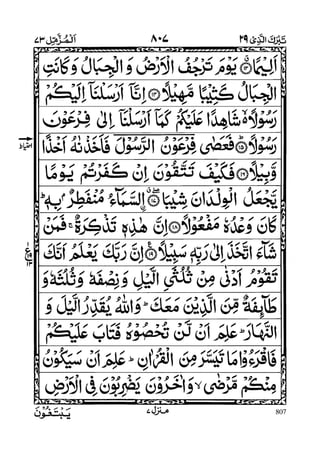 تَبٰرَكَ الَّذِیْ ٢٩ ٨٠٧ اَلْمُزَّمِّل ٧٣
اَلِیْمًا ﴿١٣﴾ یَوْمَ تَرْجُفُ الْاَرْضُ وَ الْجِبَالُ وَ كَانَتِ
الْجِبَالُ كَثِیْبًا مَّهِیْلًا ﴿١٤﴾ اِنَّاۤ اَرْسَلْنَاۤ اِلَیْكُمْ
رَسُوْلًا ۬ۙ شَاهِدًا عَلَیْكُمْ كَمَاۤ اَرْسَلْنَاۤ اِلٰى فِرْعَوْنَ
رَسُوْلًا ﴿١٥﴾ فَعَصٰى فِرْعَوْنُ الرَّسُوْلَ فَاَخَذْنٰهُ اَخْذًا
وَّبِیْلًا ﴿١٦﴾ فَكَیْفَ تَتَّقُوْنَ اِنْ كَفَرْتُمْ یَوْمًا
یَّجْعَلُ الْوِلْدَانَ شِیْبَا ﴿١٧﴾ اِ۟لسَّمَآءُ مُنْفَطِرٌۢ بِهٖ ؕ
كَانَ وَعْدُهٗ مَفْعُوْلًا ﴿١٨﴾ اِنَّ هٰذِهٖ تَذْكِرَةٌ ۚ فَمَنْ
شَآءَ اتَّخَذَ اِلٰى رَبِّهٖ سَبِیْلًا ﴿١٩﴾ اِنَّ رَبَّكَ یَعْلَمُ اَنَّكَ
تَقُوْمُ اَدْنٰى مِنْ ثُلُثَیِ الَّیْلِ وَ نِصْفَهٗ وَ ثُلُثَهٗ وَ
طَآىِٕفَةٌ مِّنَ الَّذِیْنَ مَعَكَ ؕ وَ اللّٰهُ یُقَدِّرُ الَّیْلَ وَ
النَّهَارَ ؕ عَلِمَ اَنْ لَّنْ تُحْصُوْهُ فَتَابَ عَلَیْكُمْ
فَاقْرَءُوْا مَا تَیَسَّرَ مِنَ الْقُرْاٰنِ ؕ عَلِمَ اَنْ سَیَكُوْنُ
مِنْكُمْ مَّرْضٰى ۙ وَ اٰخَرُوْنَ یَضْرِبُوْنَ فِی الْاَرْضِ
یَبْتَغُوْنَ منزل ٧ 807